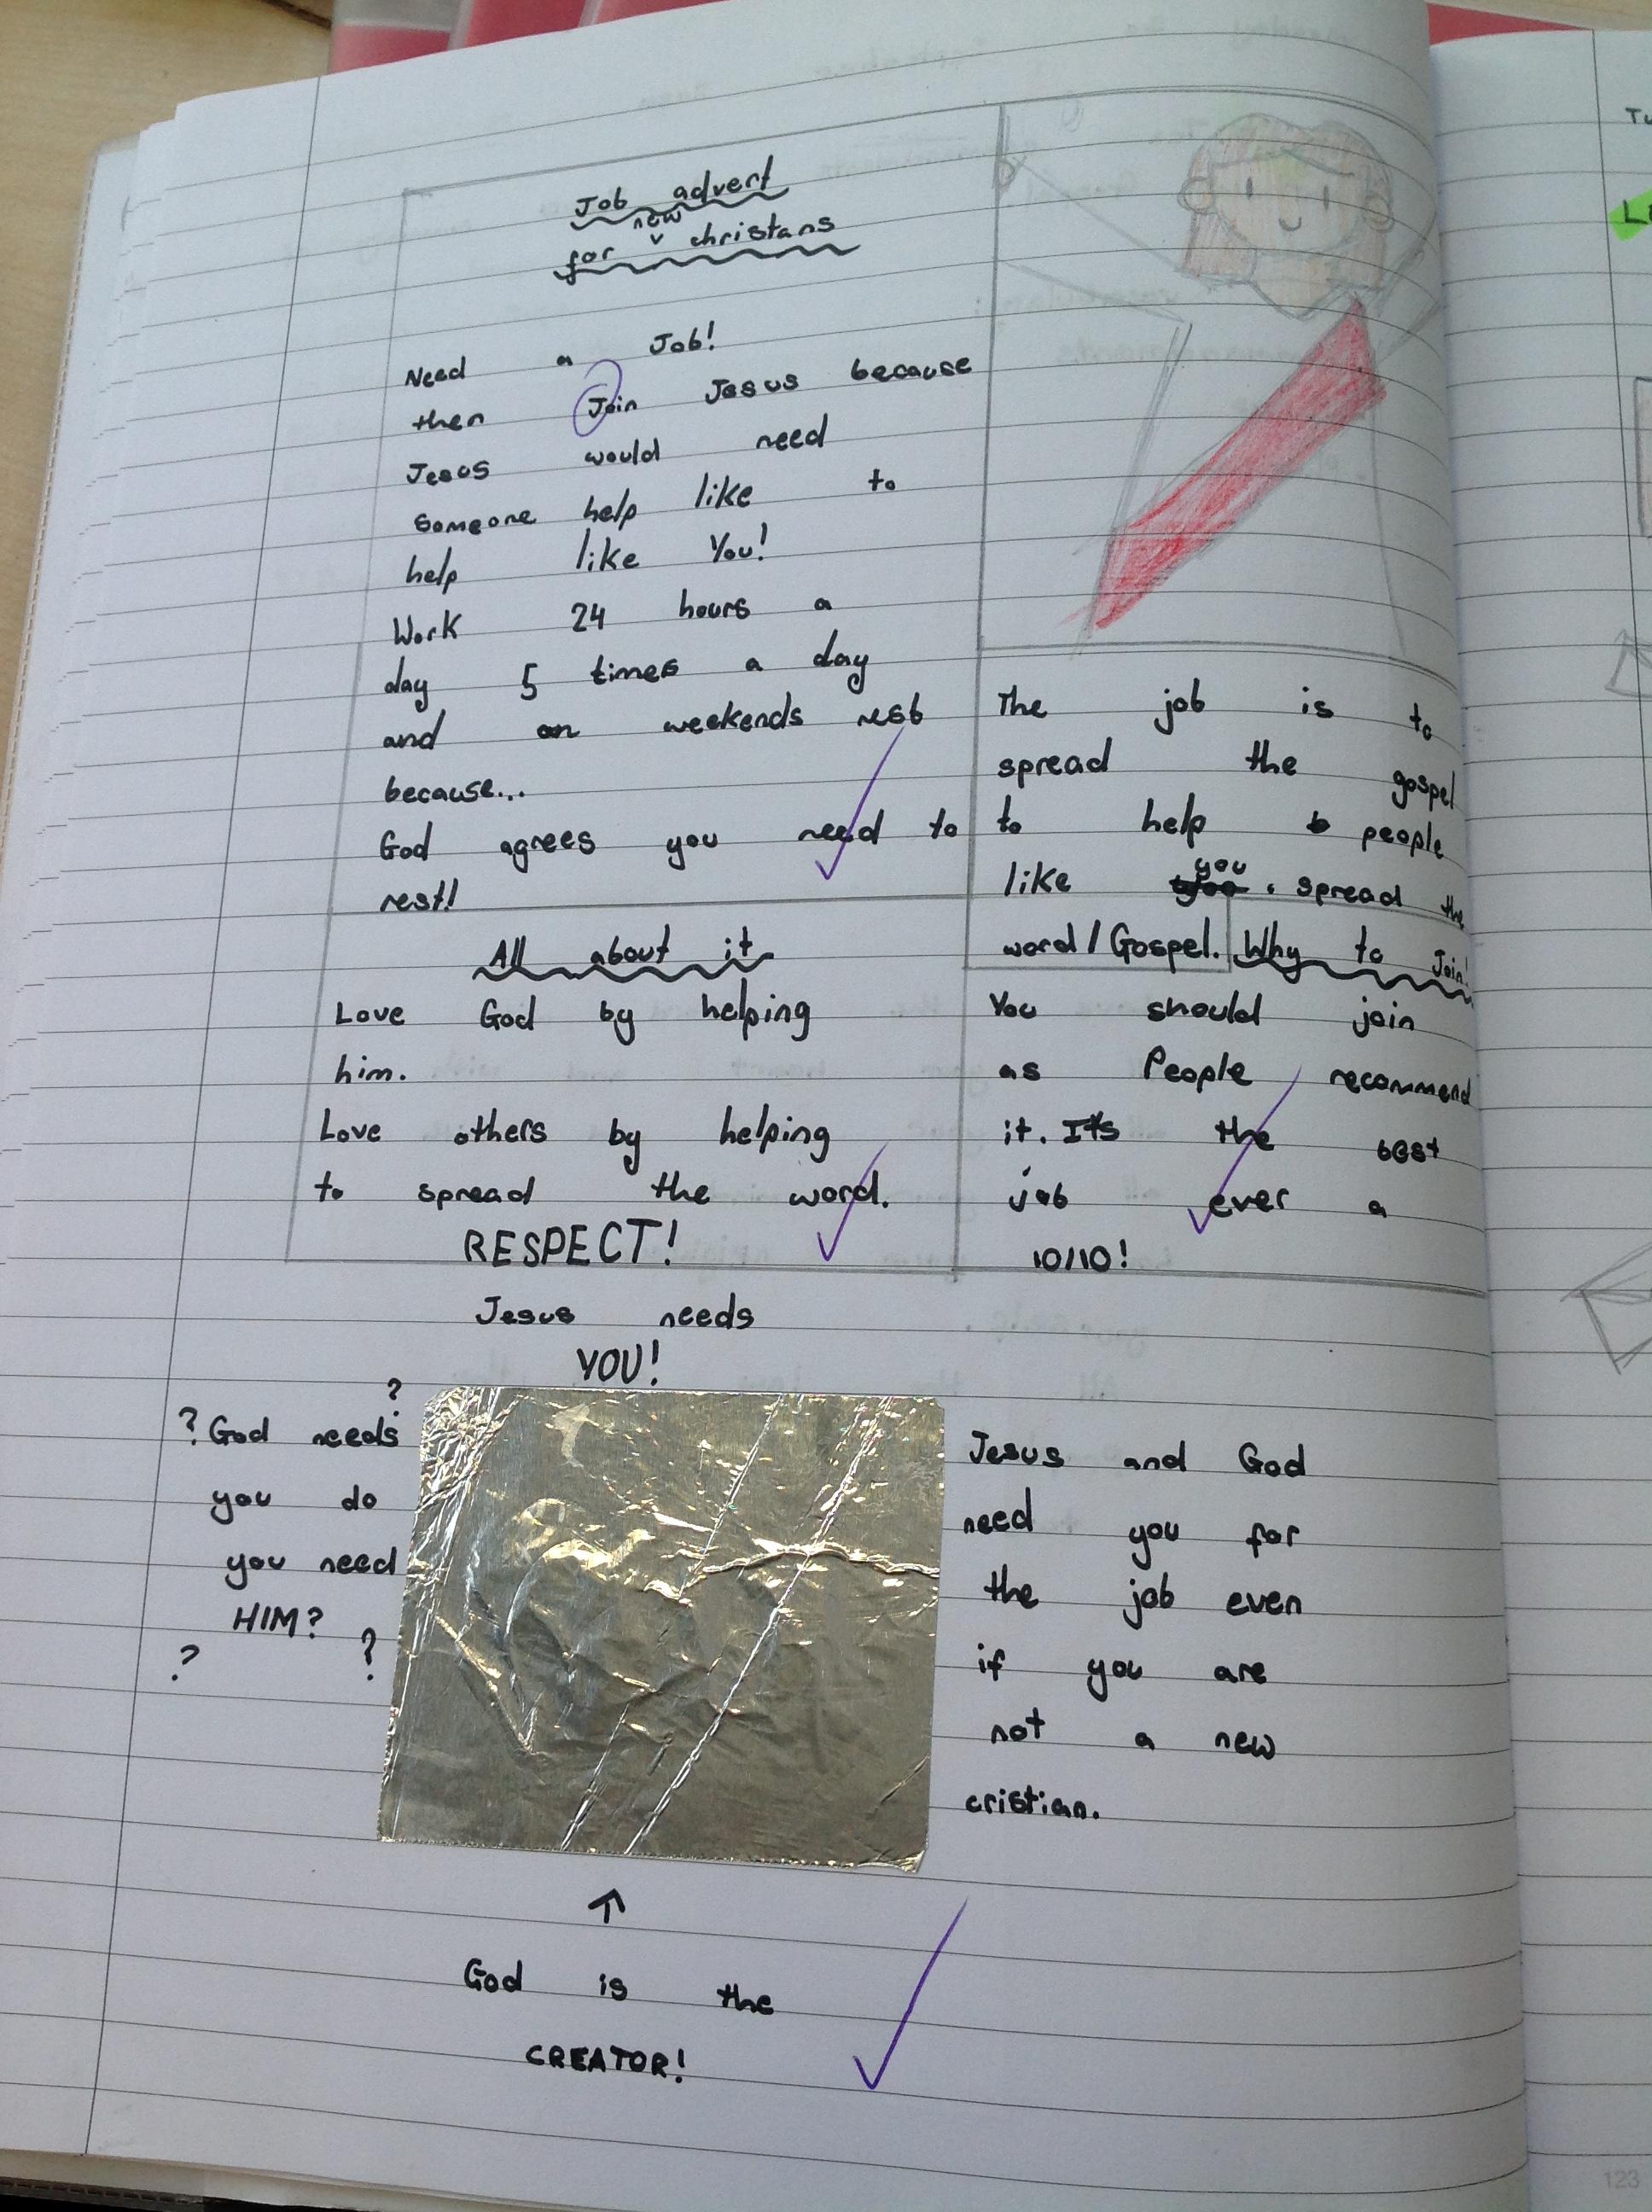 Job advert
for new christans
Need a Job!
then Join Jesus because
Jesus would need
someone help like to
help like You!
Work 24 hours a
day 5 times a day
and on weekends rest
because...
God agrees you need to
rest!
The job is to
spread the gospel
to help people
like you. spread the
word/Gospel.
All about it
Love God by helping
him.
Love others by helping
to spread the word.
RESPECT!
Why to Join!
You should join
as People recommend
it. It's the best
job ever a
10/10!
Jesus needs
YOU!
?
? God needs
you do
you need
HIM?
? ?
Jesus and God
need you for
the job even
if you are
not a new
cristian.
God is the
CREATOR!
123